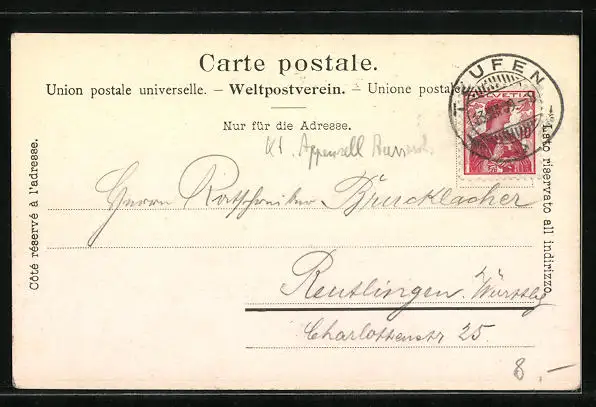 Carte postale.
Union postale universelle. – Weltpostverein. – Unione postale
Nur für die Adresse.
TEUFEN
HELVETIA
Kt. Appenzell Ausserrh.
Herrn Ratschreiber Bürcklacher
Reutlingen. Württbg
Charlottenstr 25.
8.–
Côté réservé à l'adresse.
Lato riservato all indirizzo.